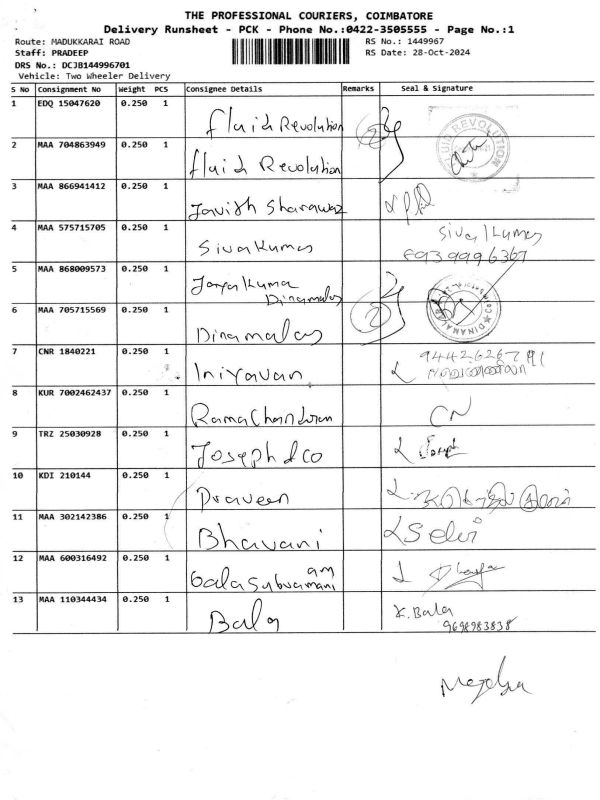 THE PROFESSIONAL COURIERS, COIMBATORE
Delivery Runsheet - PCK - Phone No.:0422-3505555 - Page No.:1
Route: MADUKKARAI ROAD RS No.: 1449967
Staff: PRADEEP RS Date: 28-Oct-2024
DRS No.: DCJB144996701
Vehicle: Two Wheeler Delivery
S No Consignment No Weight PCS Consignee Details Remarks Seal & Signature
1 EDQ 15047620 0.250 1 Fluid Revolution
2 MAA 704863949 0.250 1 Fluid Revolution
3 MAA 866941412 0.250 1
4 MAA 575715705 0.250 1 Sivakumar Sivakumar
6939996367
5 MAA 868009573 0.250 1 Jayakumar
Dinamalar
6 MAA 705715569 0.250 1 Dinamalar
7 CNR 1840221 0.250 1 Iniyavan
8 KUR 7002462437 0.250 1 Ramachandran CN
9 TRZ 25030928 0.250 1 Joseph & co Joseph
10 KDI 210144 0.250 1 Praveen
11 MAA 302142386 0.250 1 Bhavani Selvi
12 MAA 600316492 0.250 1 Balasubramaniam
13 MAA 110344434 0.250 1 Bala K. Bala
9698983838